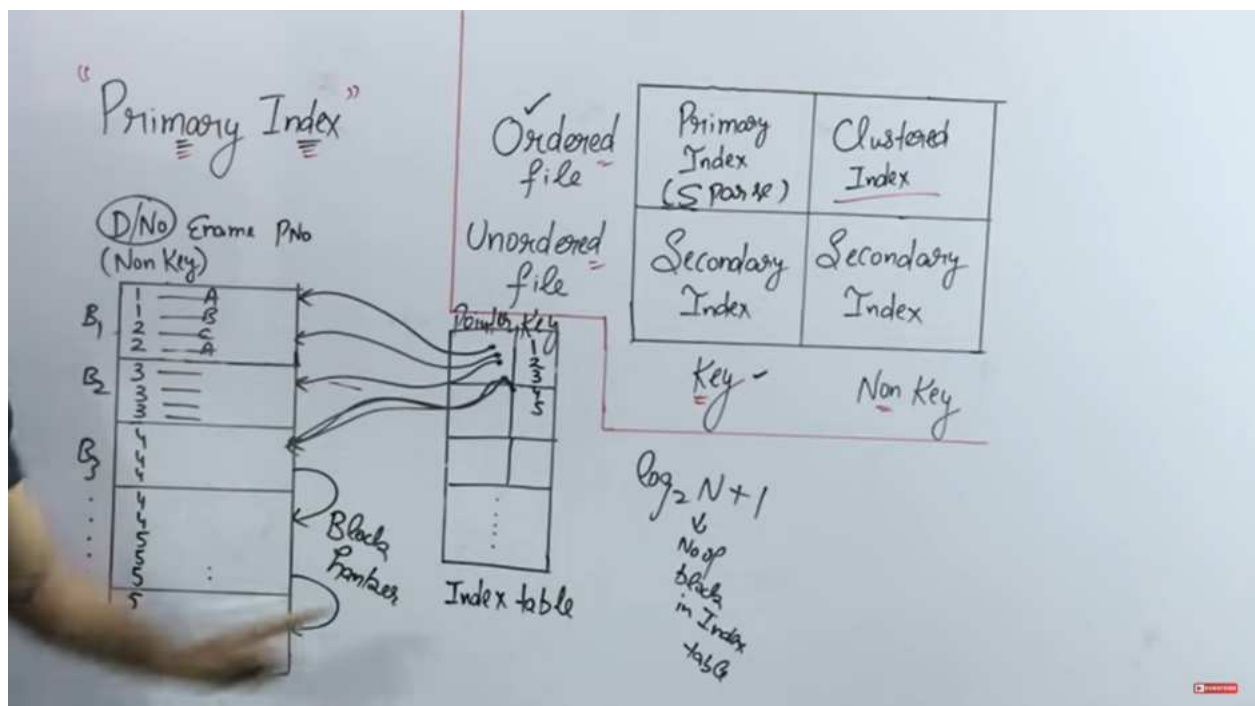 "Primary Index"
D/No Ename PNo
(Non Key)
B1
1 A
1 B
2 C
2 A
B2
3
3
3
B3
4
4
4
4
4
5
5
5
5
Block
hanker
Pointer Key
1
2
3
4
5
Index table
Ordered
file
Unordered
file
Primary
Index
(Sparse)
Clustered
Index
Secondary
Index
Secondary
Index
Key
Non Key
log2 N+1
No of
block
in Index
table
SUBSCRIBE